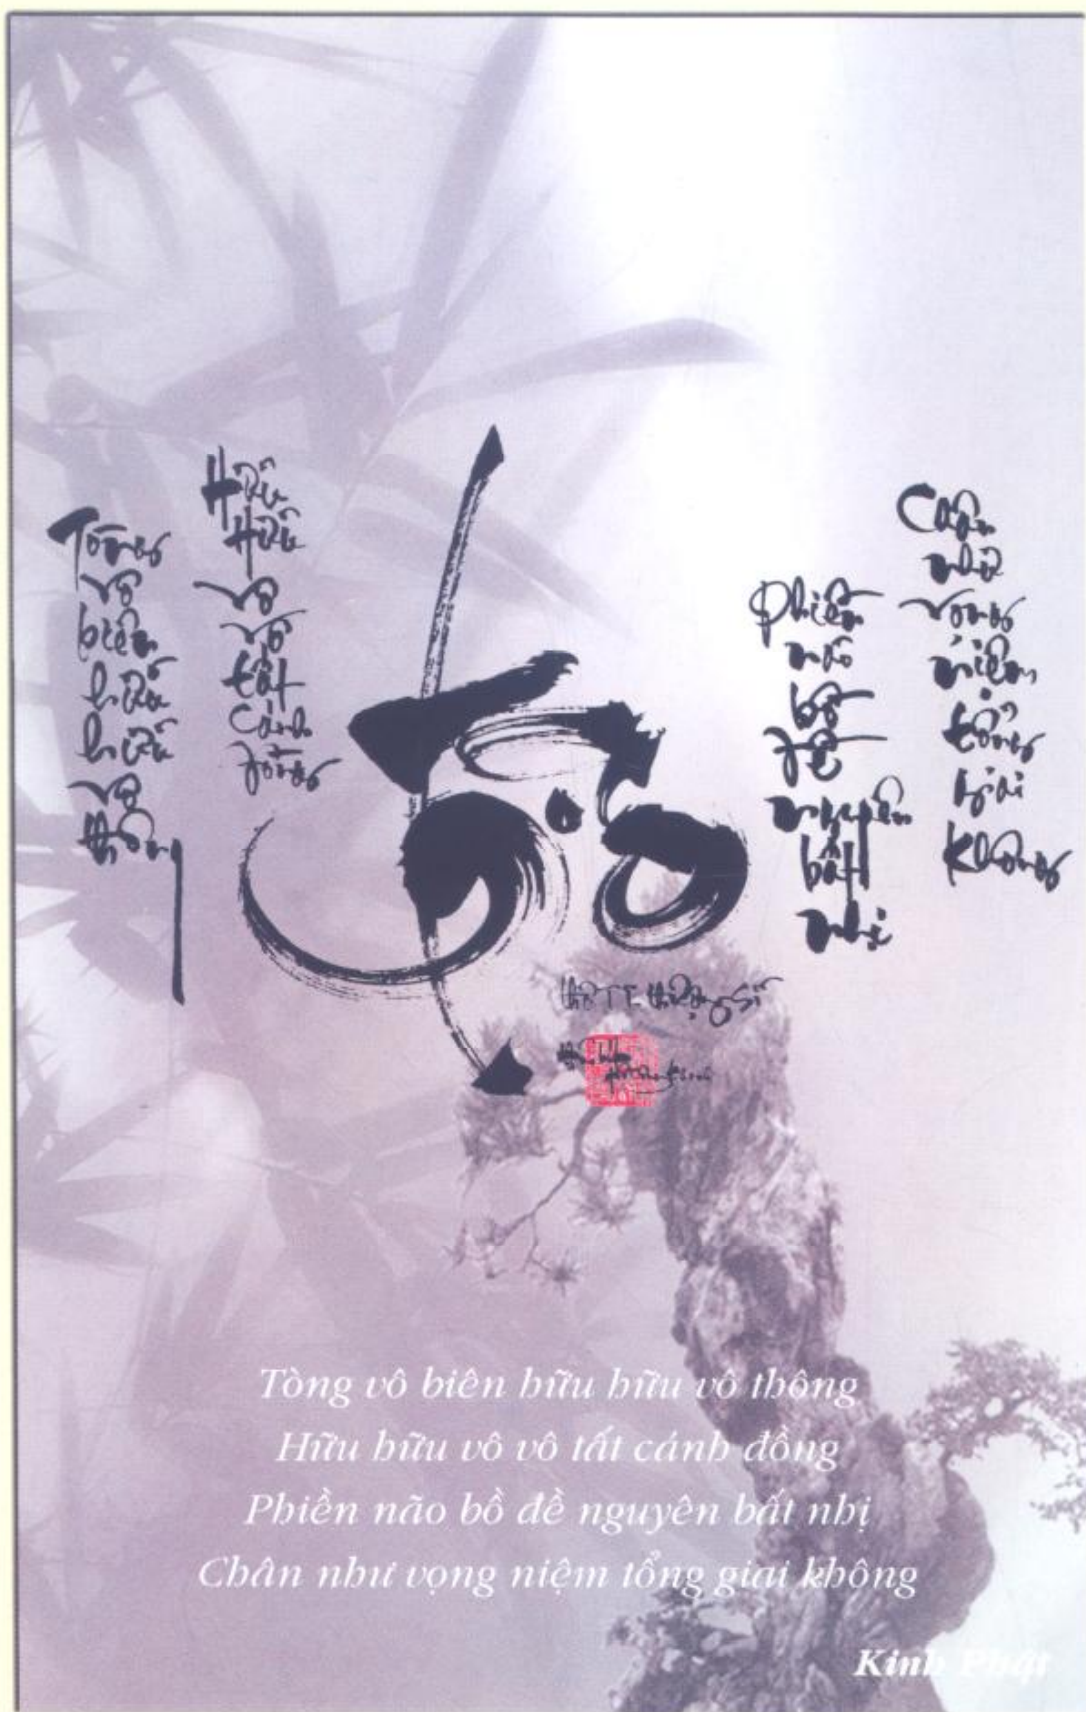 Tòng
vô
biên
hữu
hữu
vô
thông
Hữu
Hữu
vô
vô
tất
cánh
đồng
Phiền
não
bồ
đề
nguyên
bất
nhị
Chân
như
vọng
niệm
tổng
giai
không
thơ T.T. thượng sĩ
Tòng vô biên hữu hữu vô thông
Hữu hữu vô vô tất cánh đồng
Phiền não bồ đề nguyên bất nhị
Chân như vọng niệm tổng giai không
Kinh Phật